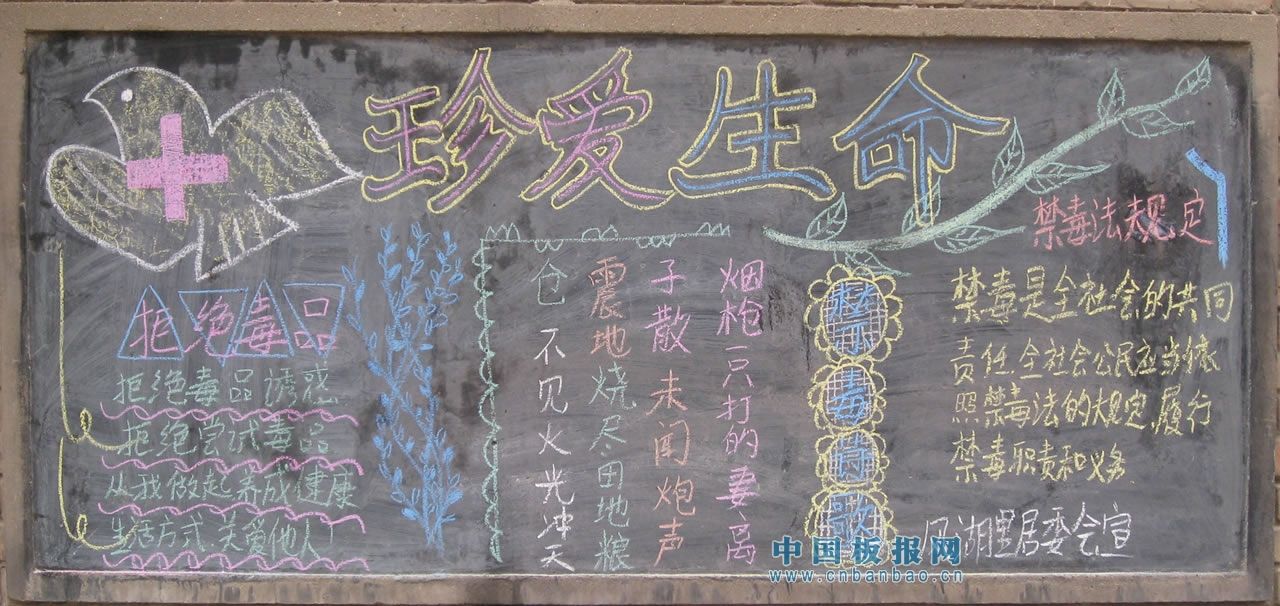 珍爱生命
拒绝毒品
拒绝毒品诱惑
拒绝尝试毒品
从我做起 养成健康
生活方式,关爱他人
禁毒诗歌
烟枪一只打的妻离
子散 未闻炮声
震地 烧尽田地粮
仓 不见火光冲天
禁毒法规定
禁毒是全社会的共同
责任,全社会公民应当依
照禁毒法的规定,履行
禁毒职责和义务
湖里居委会宣
中国板报网
www.cnbanbao.cn